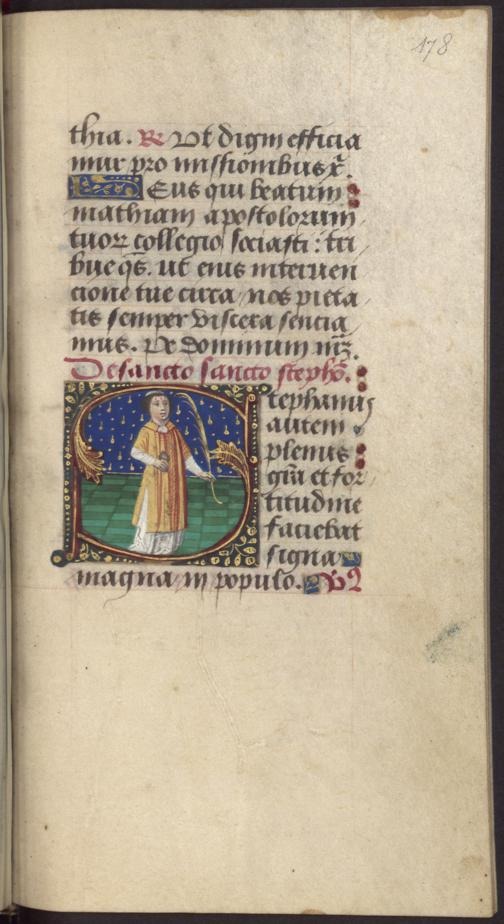 178
thia. R Ut digni efficia
mur pro missionibus x̄.
Eus qui beatum
mathiam apostolorum
tuoꝝ collegio sociasti : tri
bue qs̄. ut eius interuen
cione tue circa nos pieta
tis semper viscera sencia
mus. Per dominum nr̄ꝫ.
De sancto sancto steph̄o.
Stephanus
autem
plenus
gr̄a et for
titudine
faciebat
signa
magna in populo.